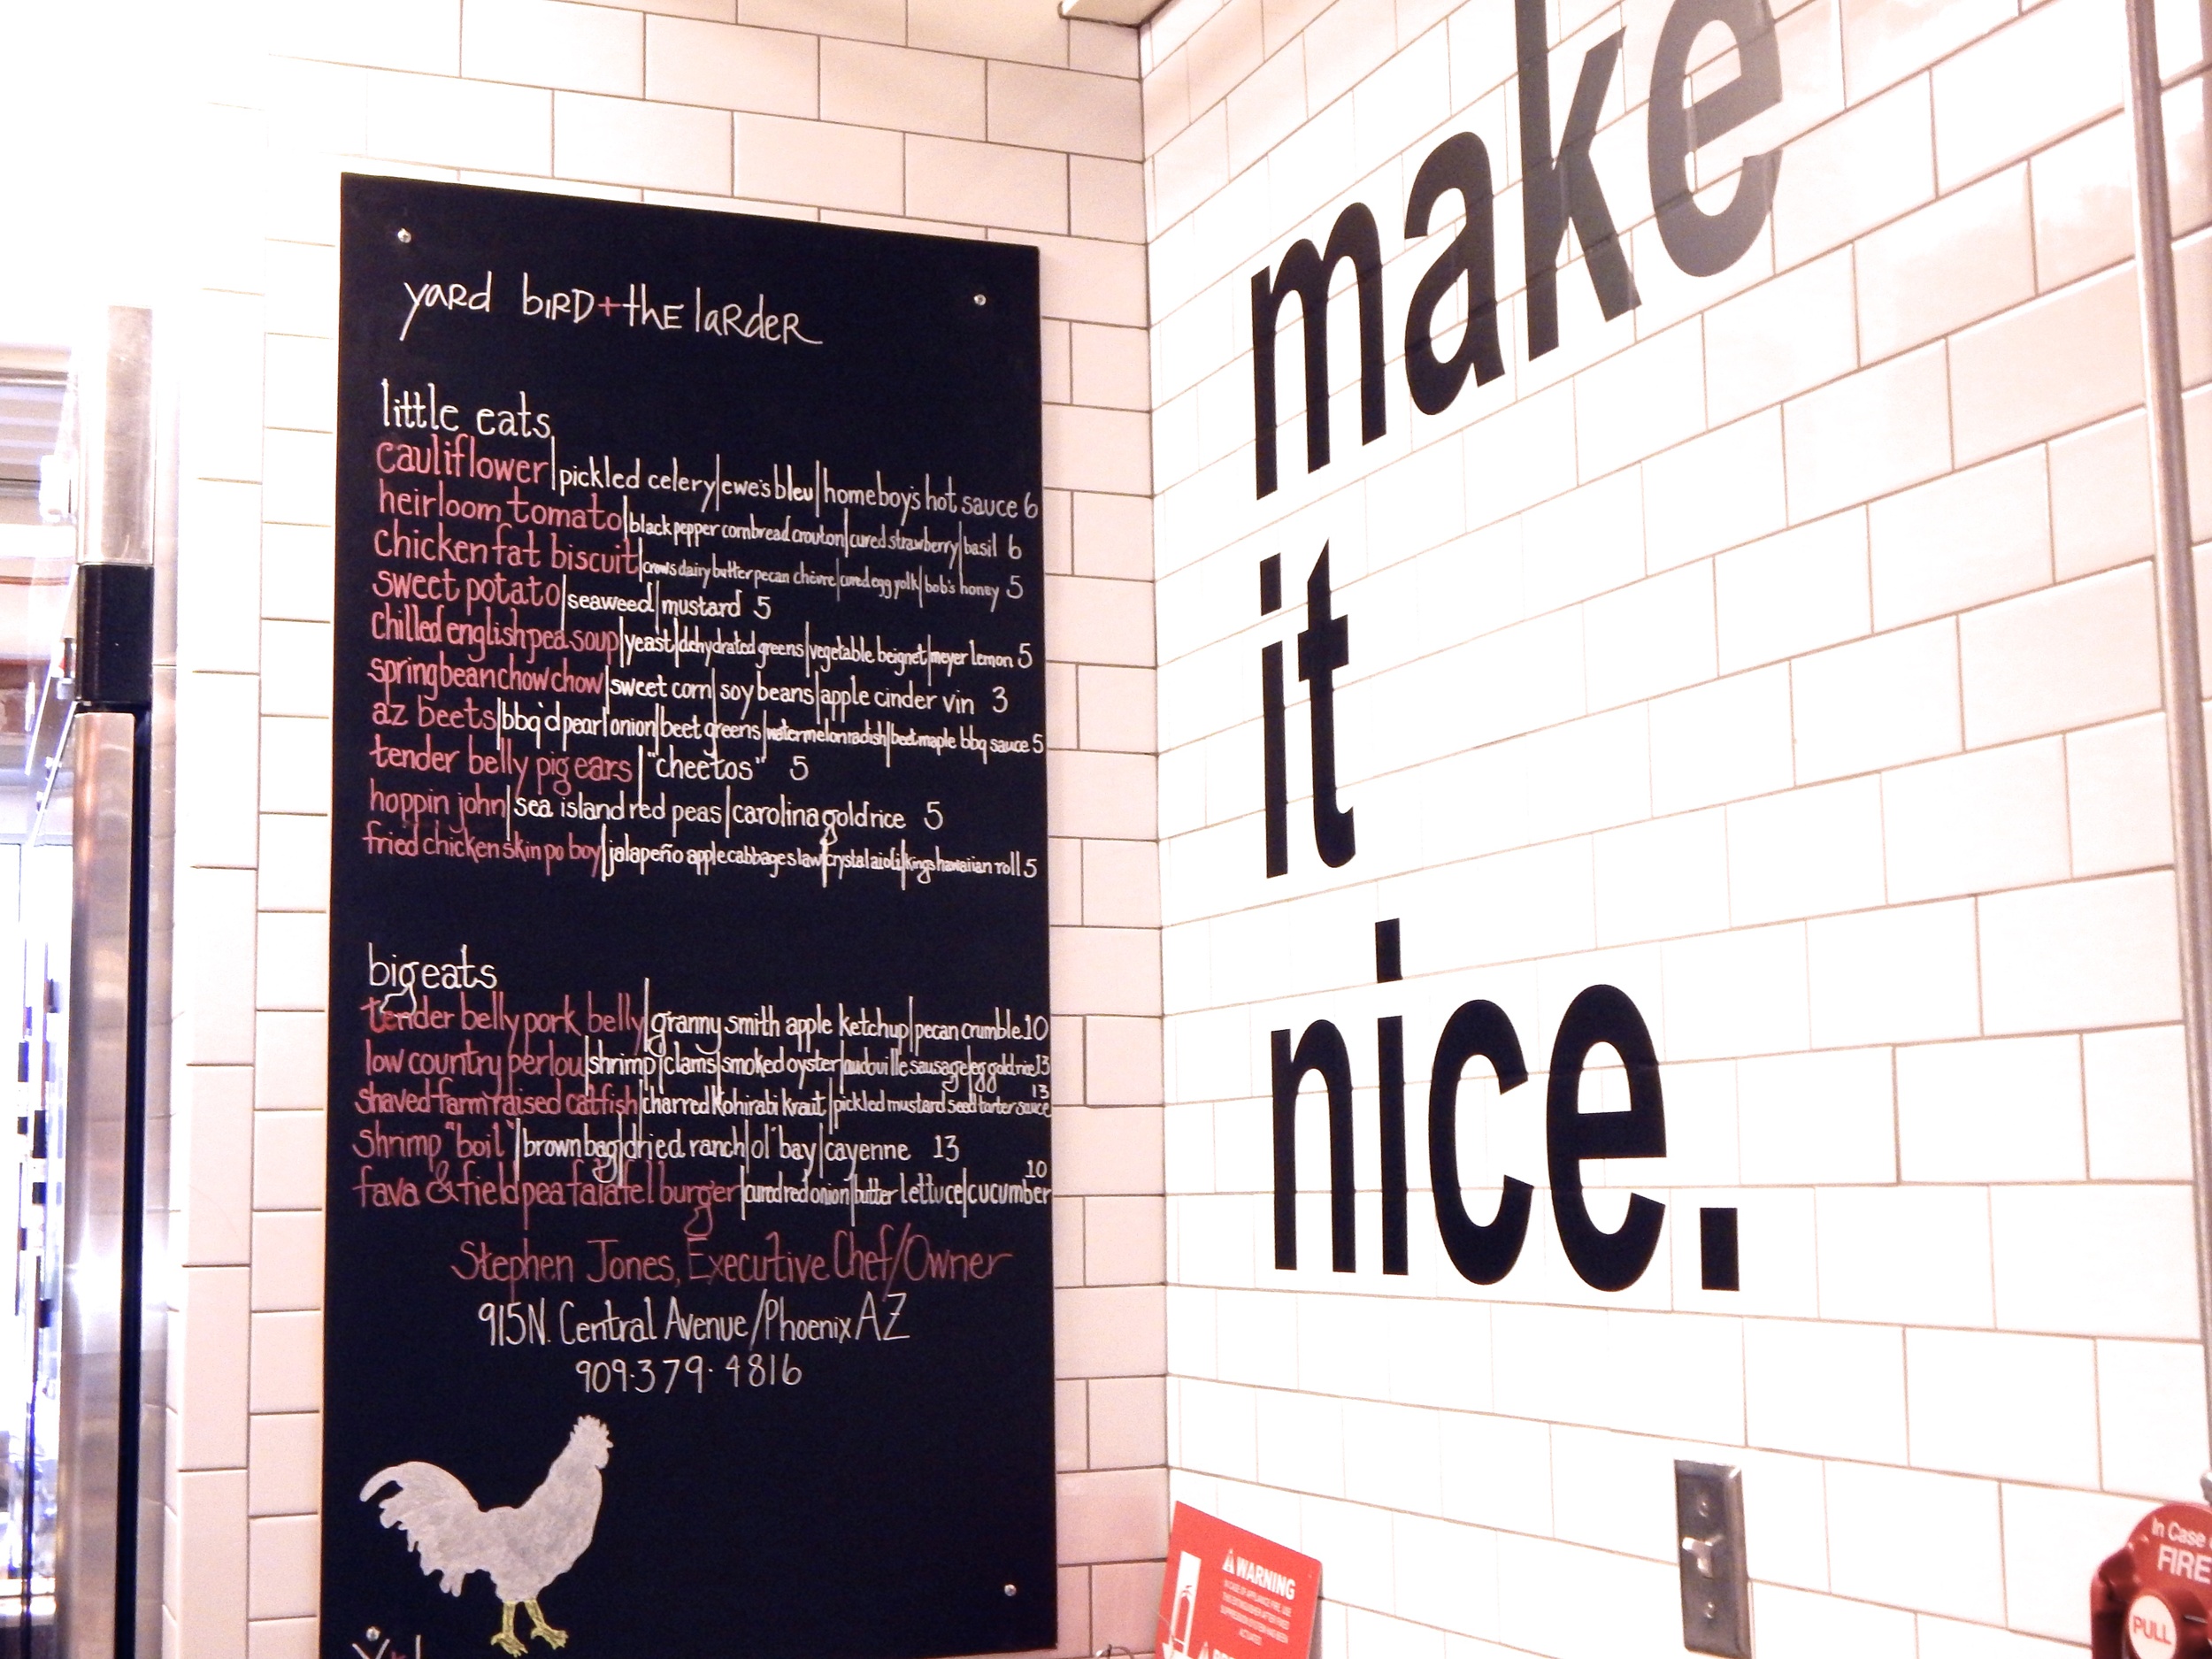 yard bird + the larder
little eats
cauliflower|pickled celery|ewe's bleu|homeboy's hot sauce 6
heirloom tomato|black pepper cornbread crouton|cured strawberry|basil 6
chicken fat biscuit|crows dairy butter pecan chèvre|cured egg yolk|bob's honey 5
sweet potato|seaweed|mustard 5
chilled english pea soup|yeast|dehydrated greens|vegetable beignet|meyer lemon 5
spring bean chow chow|sweet corn|soy beans|apple cinder vin 3
az beets|bbq'd pear|onion|beet greens|watermelon radish|beet maple bbq sauce 5
tender belly pig ears|"cheetos" 5
hoppin john|sea island red peas|carolina gold rice 5
fried chicken skin po boy|jalapeño apple cabbage slaw|crystal aioli|kings hawaiian roll 5
big eats
tender belly pork belly|granny smith apple ketchup|pecan crumble 10
low country perlou|shrimp|clams|smoked oyster|audouille sausage|egg gold rice 13
shaved farm raised catfish|charred kohirabi kraut|pickled mustard seed tarter sauce 13
shrimp "boil"|brown bag|dried ranch|ol' bay|cayenne 13
fava & field pea falafel burger|cured red onion|butter lettuce|cucumber 10
Stephen Jones, Executive Chef/Owner
915 N. Central Avenue/Phoenix AZ
909.379.4816
make
it
nice.
WARNING
IN CASE OF APPLIANCE FIRE, USE
THIS EXTINGUISHER AFTER FIXED
SUPPRESSION SYSTEM HAS BEEN
ACTUATED.
In Case
FIRE
PULL